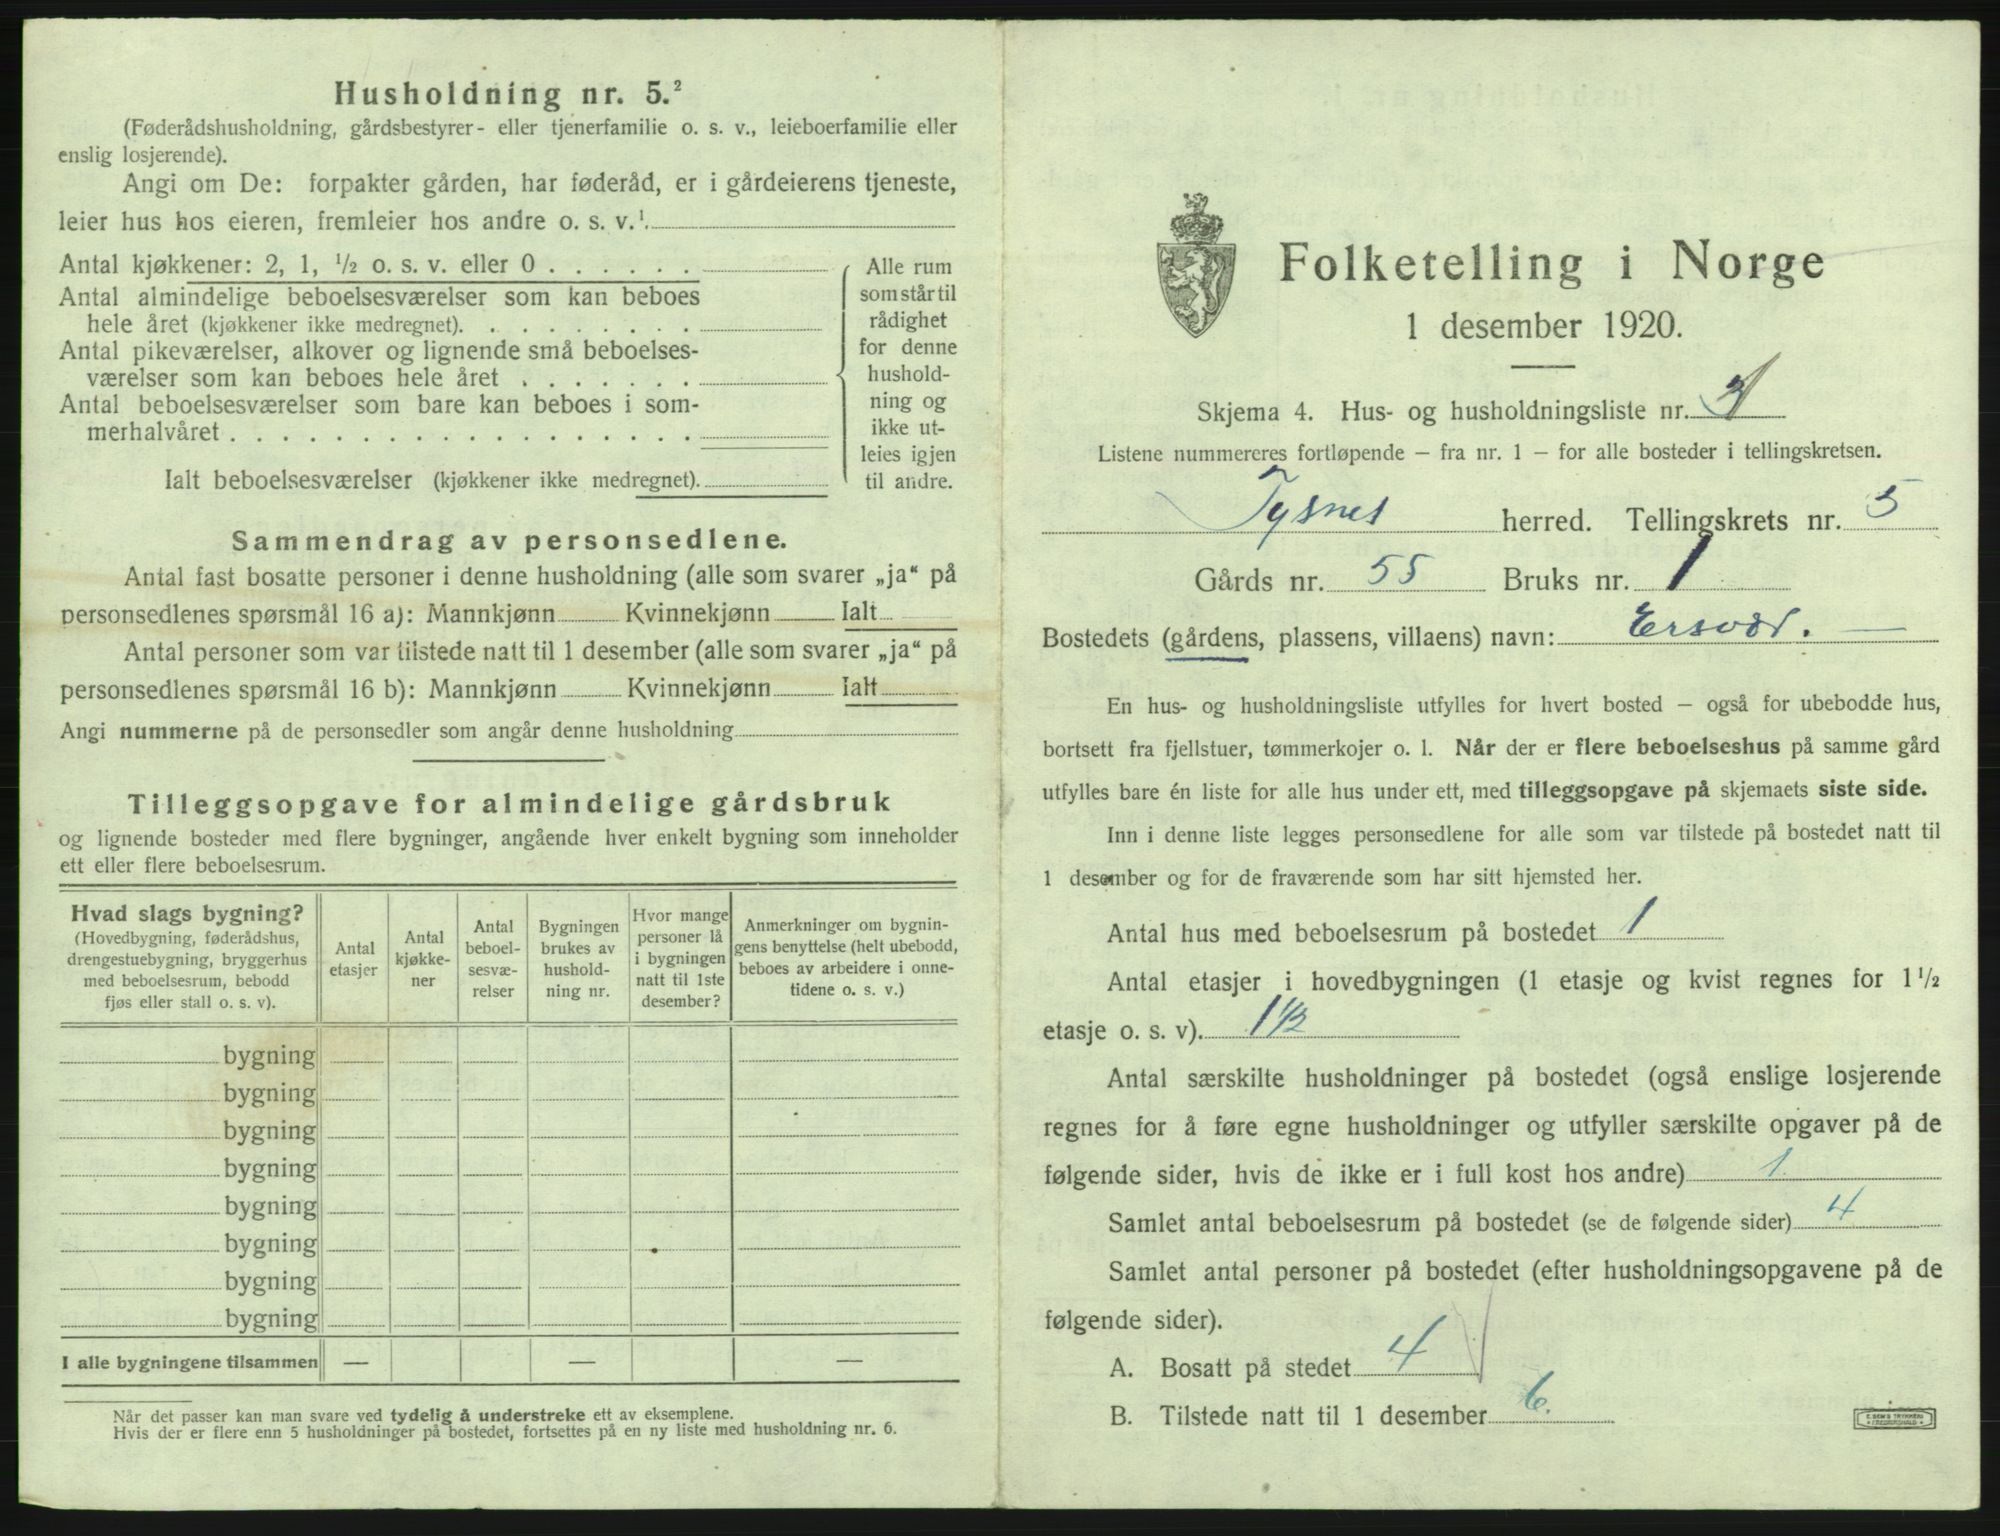 Husholdning nr. 5.²
(Føderådshusholdning, gårdsbestyrer- eller tjenerfamilie o. s. v., leieboerfamilie eller
enslig losjerende).
Angi om De: forpakter gården, har føderåd, er i gårdeierens tjeneste,
leier hus hos eieren, fremleier hos andre o. s. v.¹.
Antal kjøkkener: 2, 1, ½ o. s. v. eller 0
Antal almindelige beboelsesværelser som kan beboes
hele året (kjøkkener ikke medregnet).
Antal pikeværelser, alkover og lignende små beboelses-
værelser som kan beboes hele året
Antal beboelsesværelser som bare kan beboes i som-
merhalvåret
Ialt beboelsesværelser (kjøkkener ikke medregnet).
Alle rum
som står til
rådighet
for denne
hushold-
ning og
ikke ut-
leies igjen
til andre.
Sammendrag av personsedlene.
Antal fast bosatte personer i denne husholdning (alle som svarer „ja“ på
personsedlenes spørsmål 16 a): Mannkjønn Kvinnekjønn Ialt
Antal personer som var tilstede natt til 1 desember (alle som svarer „ja“ på
personsedlenes spørsmål 16 b): Mannkjønn Kvinnekjønn Ialt
Angi nummerne på de personsedler som angår denne husholdning
Tilleggsopgave for almindelige gårdsbruk
og lignende bosteder med flere bygninger, angående hver enkelt bygning som inneholder
ett eller flere beboelsesrum.
Hvad slags bygning?
(Hovedbygning, føderådshus,
drengestuebygning, bryggerhus
med beboelsesrum, bebodd
fjøs eller stall o. s. v).
Antal
etasjer
Antal
kjøkke-
ner
Antal
beboel-
sesvæ-
relser
Bygningen
brukes av
hushold-
ning nr.
Hvor mange
personer lå
i bygningen
natt til 1ste
desember?
Anmerkninger om bygnin-
gens benyttelse (helt ubebodd,
beboes av arbeidere i onne-
tidene o. s. v.)
bygning
bygning
bygning
bygning
bygning
bygning
bygning
bygning
I alle bygningene tilsammen — — —
Når det passer kan man svare ved tydelig å understreke ett av eksemplene.
Hvis der er flere enn 5 husholdninger på bostedet, fortsettes på en ny liste med husholdning nr. 6.
Folketelling i Norge
1 desember 1920.
Skjema 4. Hus- og husholdningsliste nr.
Listene nummereres fortløpende – fra nr. 1 – for alle bosteder i tellingskretsen.
Tysnes herred. Tellingskrets nr. 5
Gårds nr. 55 Bruks nr. 1
Bostedets (gårdens, plassens, villaens) navn: Ersvær. —
En hus- og husholdningsliste utfylles for hvert bosted – også for ubebodde hus,
bortsett fra fjellstuer, tømmerkojer o. l. Når der er flere beboelseshus på samme gård
utfylles bare én liste for alle hus under ett, med tilleggsopgave på skjemaets siste side.
Inn i denne liste legges personsedlene for alle som var tilstede på bostedet natt til
1 desember og for de fraværende som har sitt hjemsted her.
Antal hus med beboelsesrum på bostedet 1
Antal etasjer i hovedbygningen (1 etasje og kvist regnes for 1½
etasje o. s. v). 1 1/2
Antal særskilte husholdninger på bostedet (også enslige losjerende
regnes for å føre egne husholdninger og utfyller særskilte opgaver på de
følgende sider, hvis de ikke er i full kost hos andre) 1.
Samlet antal beboelsesrum på bostedet (se de følgende sider) 4
Samlet antal personer på bostedet (efter husholdningsopgavene på de
følgende sider).
A. Bosatt på stedet 4
B. Tilstede natt til 1 desember 6.